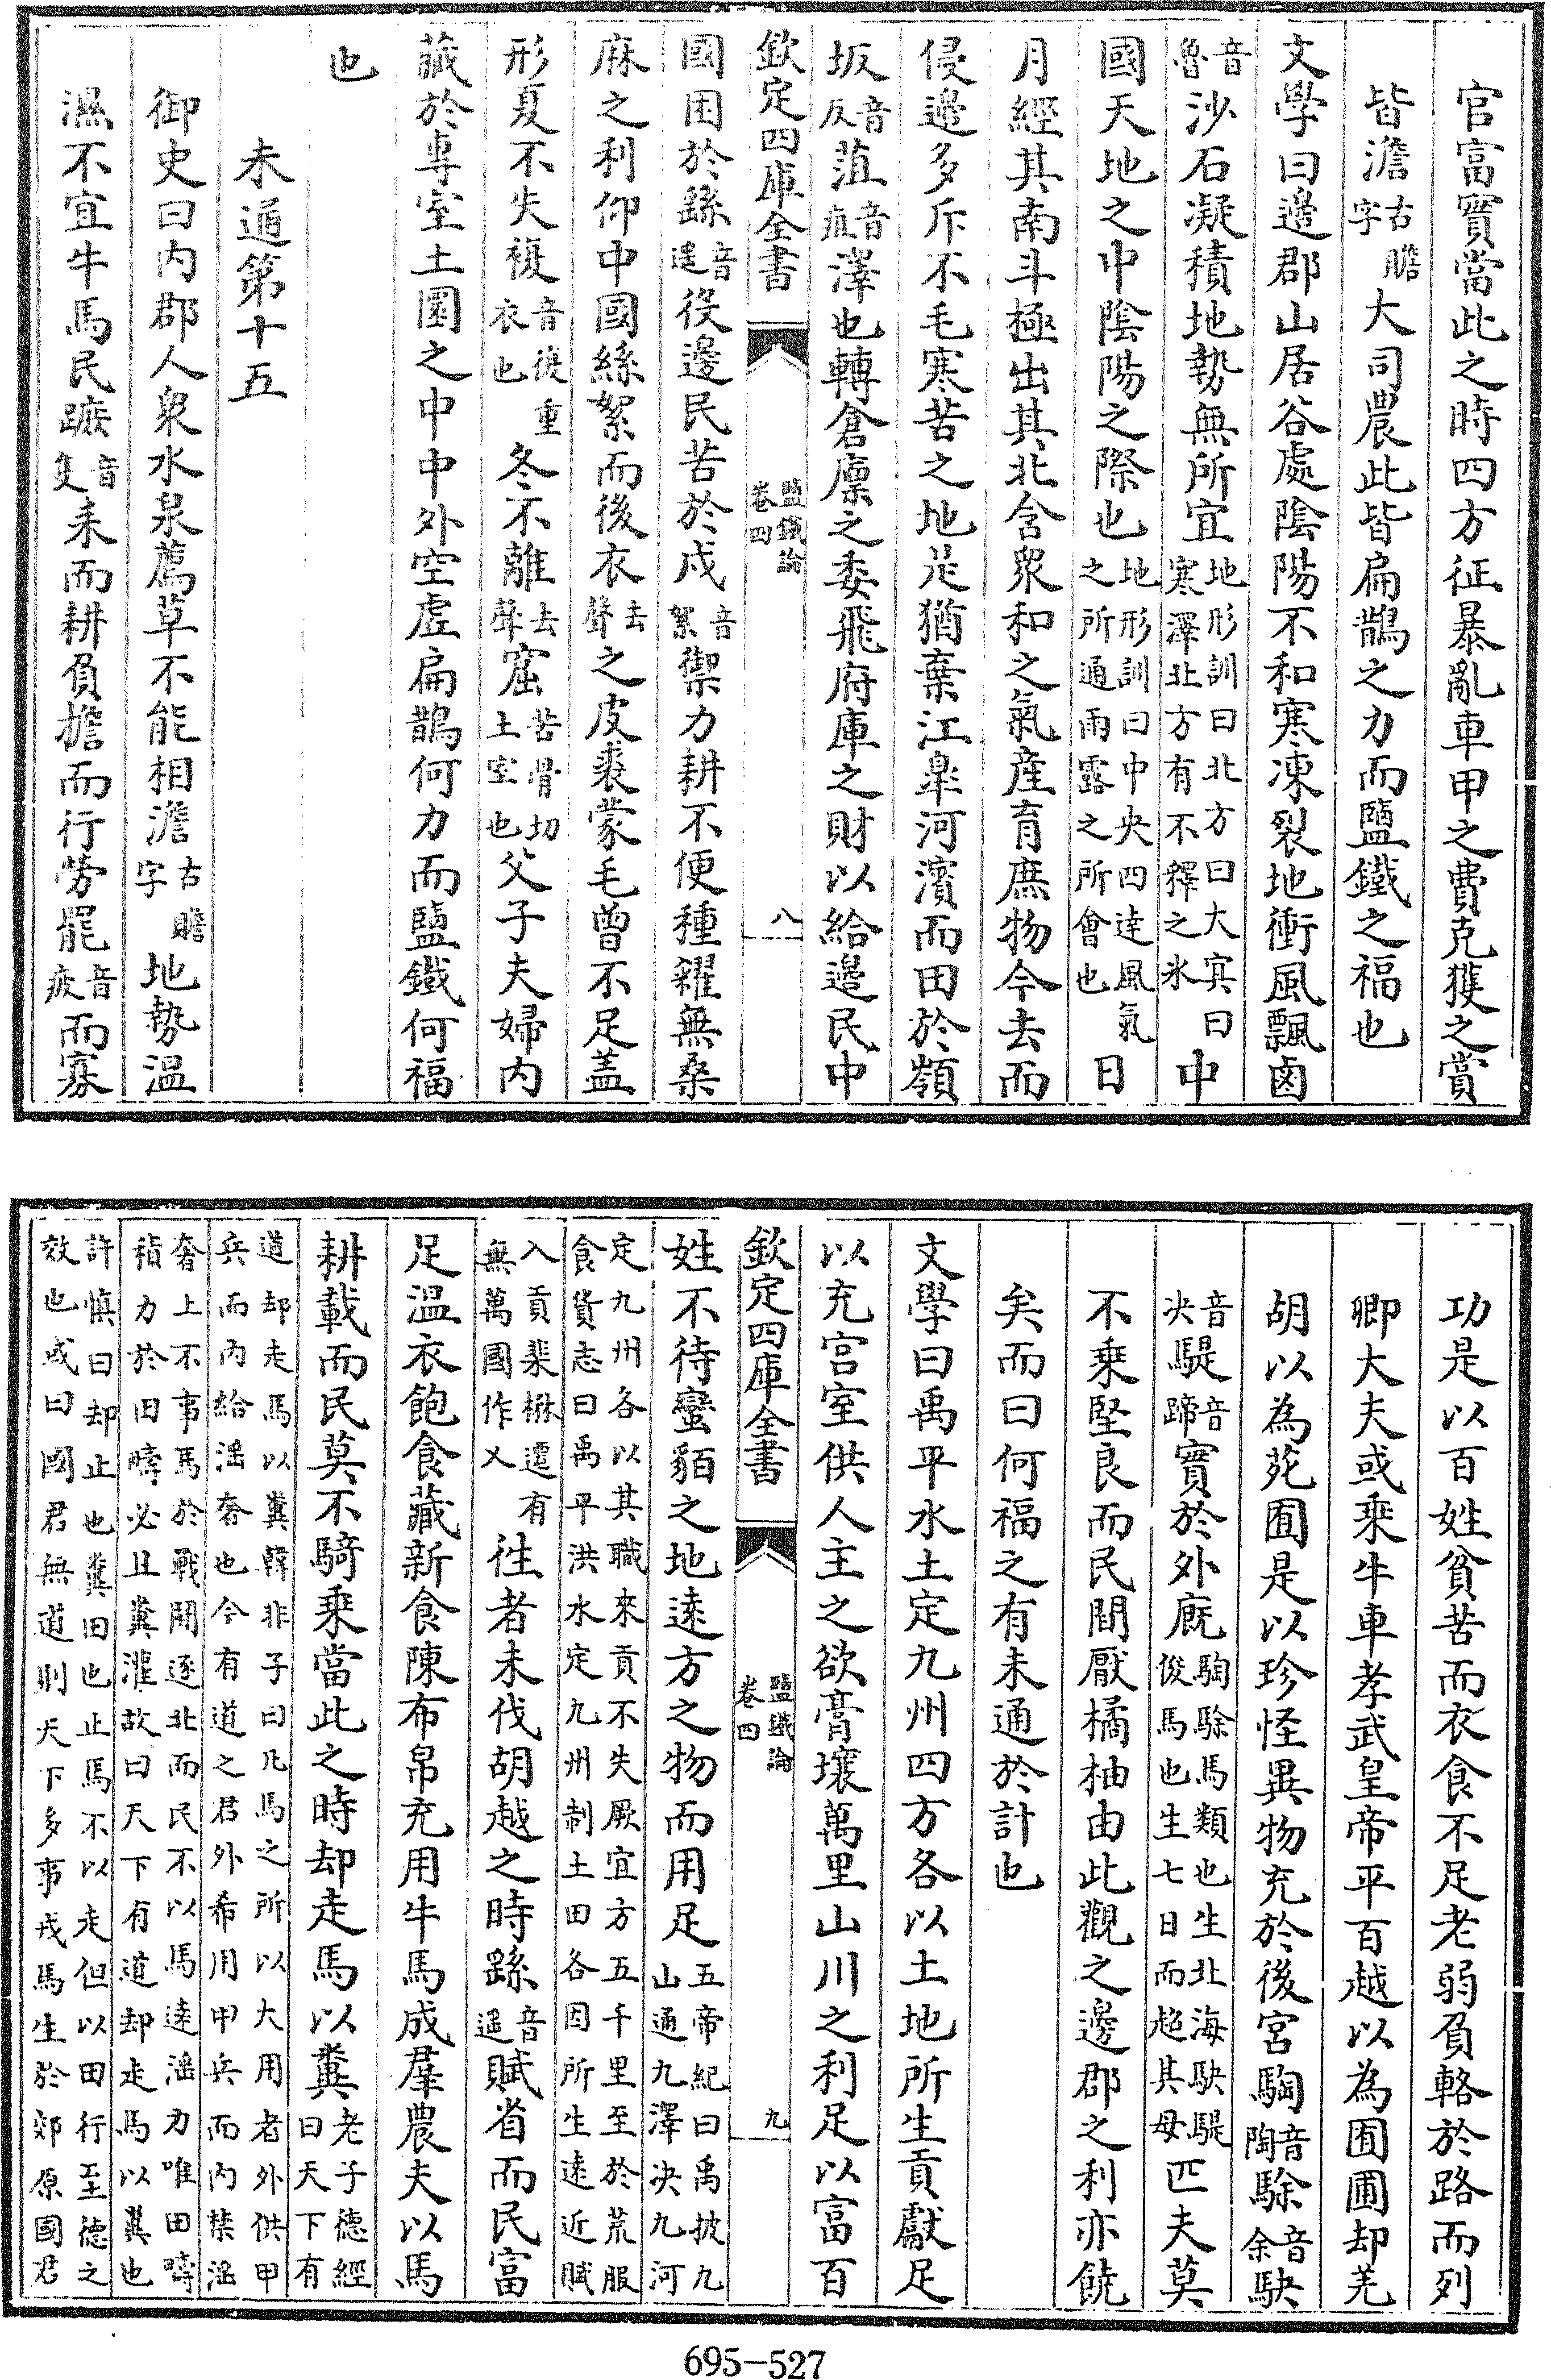 官富實當此之時四方征暴亂車甲之費克獲之賞
皆澹古贍字大司農此皆扁鵲之力而鹽鐵之福也
文學曰邊郡山居谷處陰陽不和寒凍裂地衝風飄鹵
音魯沙石凝積地勢無所宜地形訓曰北方曰大㝠曰寒澤北方有不釋之氷中
國天地之中陰陽之際也地形訓曰中央四達風氣之所通雨露之所會也日
月經其南斗極出其北含衆和之氣產育庶物今去而
侵邊多斥不毛寒苦之地是猶棄江臯河濱而田於嶺
坂音反菹音疽澤也轉倉廩之委飛府庫之財以給邊民中
欽定四庫全書
鹽鐵論
卷四
八
國困於繇音遥役邊民苦於戍音絮禦力耕不便種糴無桑
麻之利仰中國絲絮而後衣去聲之皮裘蒙毛曾不足蓋
形夏不失複音複重衣也冬不離去聲窟苦骨切土室也父子夫婦内
藏於專室土圜之中中外空虚扁鵲何力而鹽鐵何福
也
未通第十五
御史曰内郡人衆水泉薦草不能相澹古贍字地勢温
濕不宜牛馬民蹠音隻耒而耕負擔而行勞罷音疲而寡
功是以百姓貧苦而衣食不足老弱負輅於路而列
卿大夫或乘牛車孝武皇帝平百越以為囿圃却羌
胡以為苑囿是以珍怪異物充於後宮騊音陶駼音余駃
音决騠音蹄實於外廐騊駼馬類也生北海駃騠俊馬也生七日而超其母匹夫莫
不乘堅良而民間厭橘柚由此觀之邊郡之利亦饒
矣而曰何福之有未通於計也
文學曰禹平水土定九州四方各以土地所生貢獻足
以充宮室供人主之欲膏壤萬里山川之利足以富百
欽定四庫全書
鹽鐵論
卷四
九
姓不待蠻貊之地遠方之物而用足五帝紀曰禹披九山通九澤决九河
定九州各以其職來貢不失厥宜方五千里至於荒服食貨志曰禹平洪水定九州制土田各因所生遠近賦
入貢棐楙遷有無萬國作乂徃者未伐胡越之時繇音遥賦省而民富
足温衣飽食藏新食陳布帛充用牛馬成羣農夫以馬
耕載而民莫不騎乘當此之時却走馬以糞老子德經曰天下有
道却走馬以糞韓非子曰凡馬之所以大用者外供甲兵而内給滛奢也今有道之君外希用甲兵而内禁滛
奢上不事馬於戰鬭逐北而民不以馬逺滛力唯田疇積力於田疇必且糞灌故曰天下有道却走馬以糞也
許慎曰却止也糞田也止馬不以走但以田行至德之效也或曰國君無道則天下多事戎馬生於郊原國君
695-527